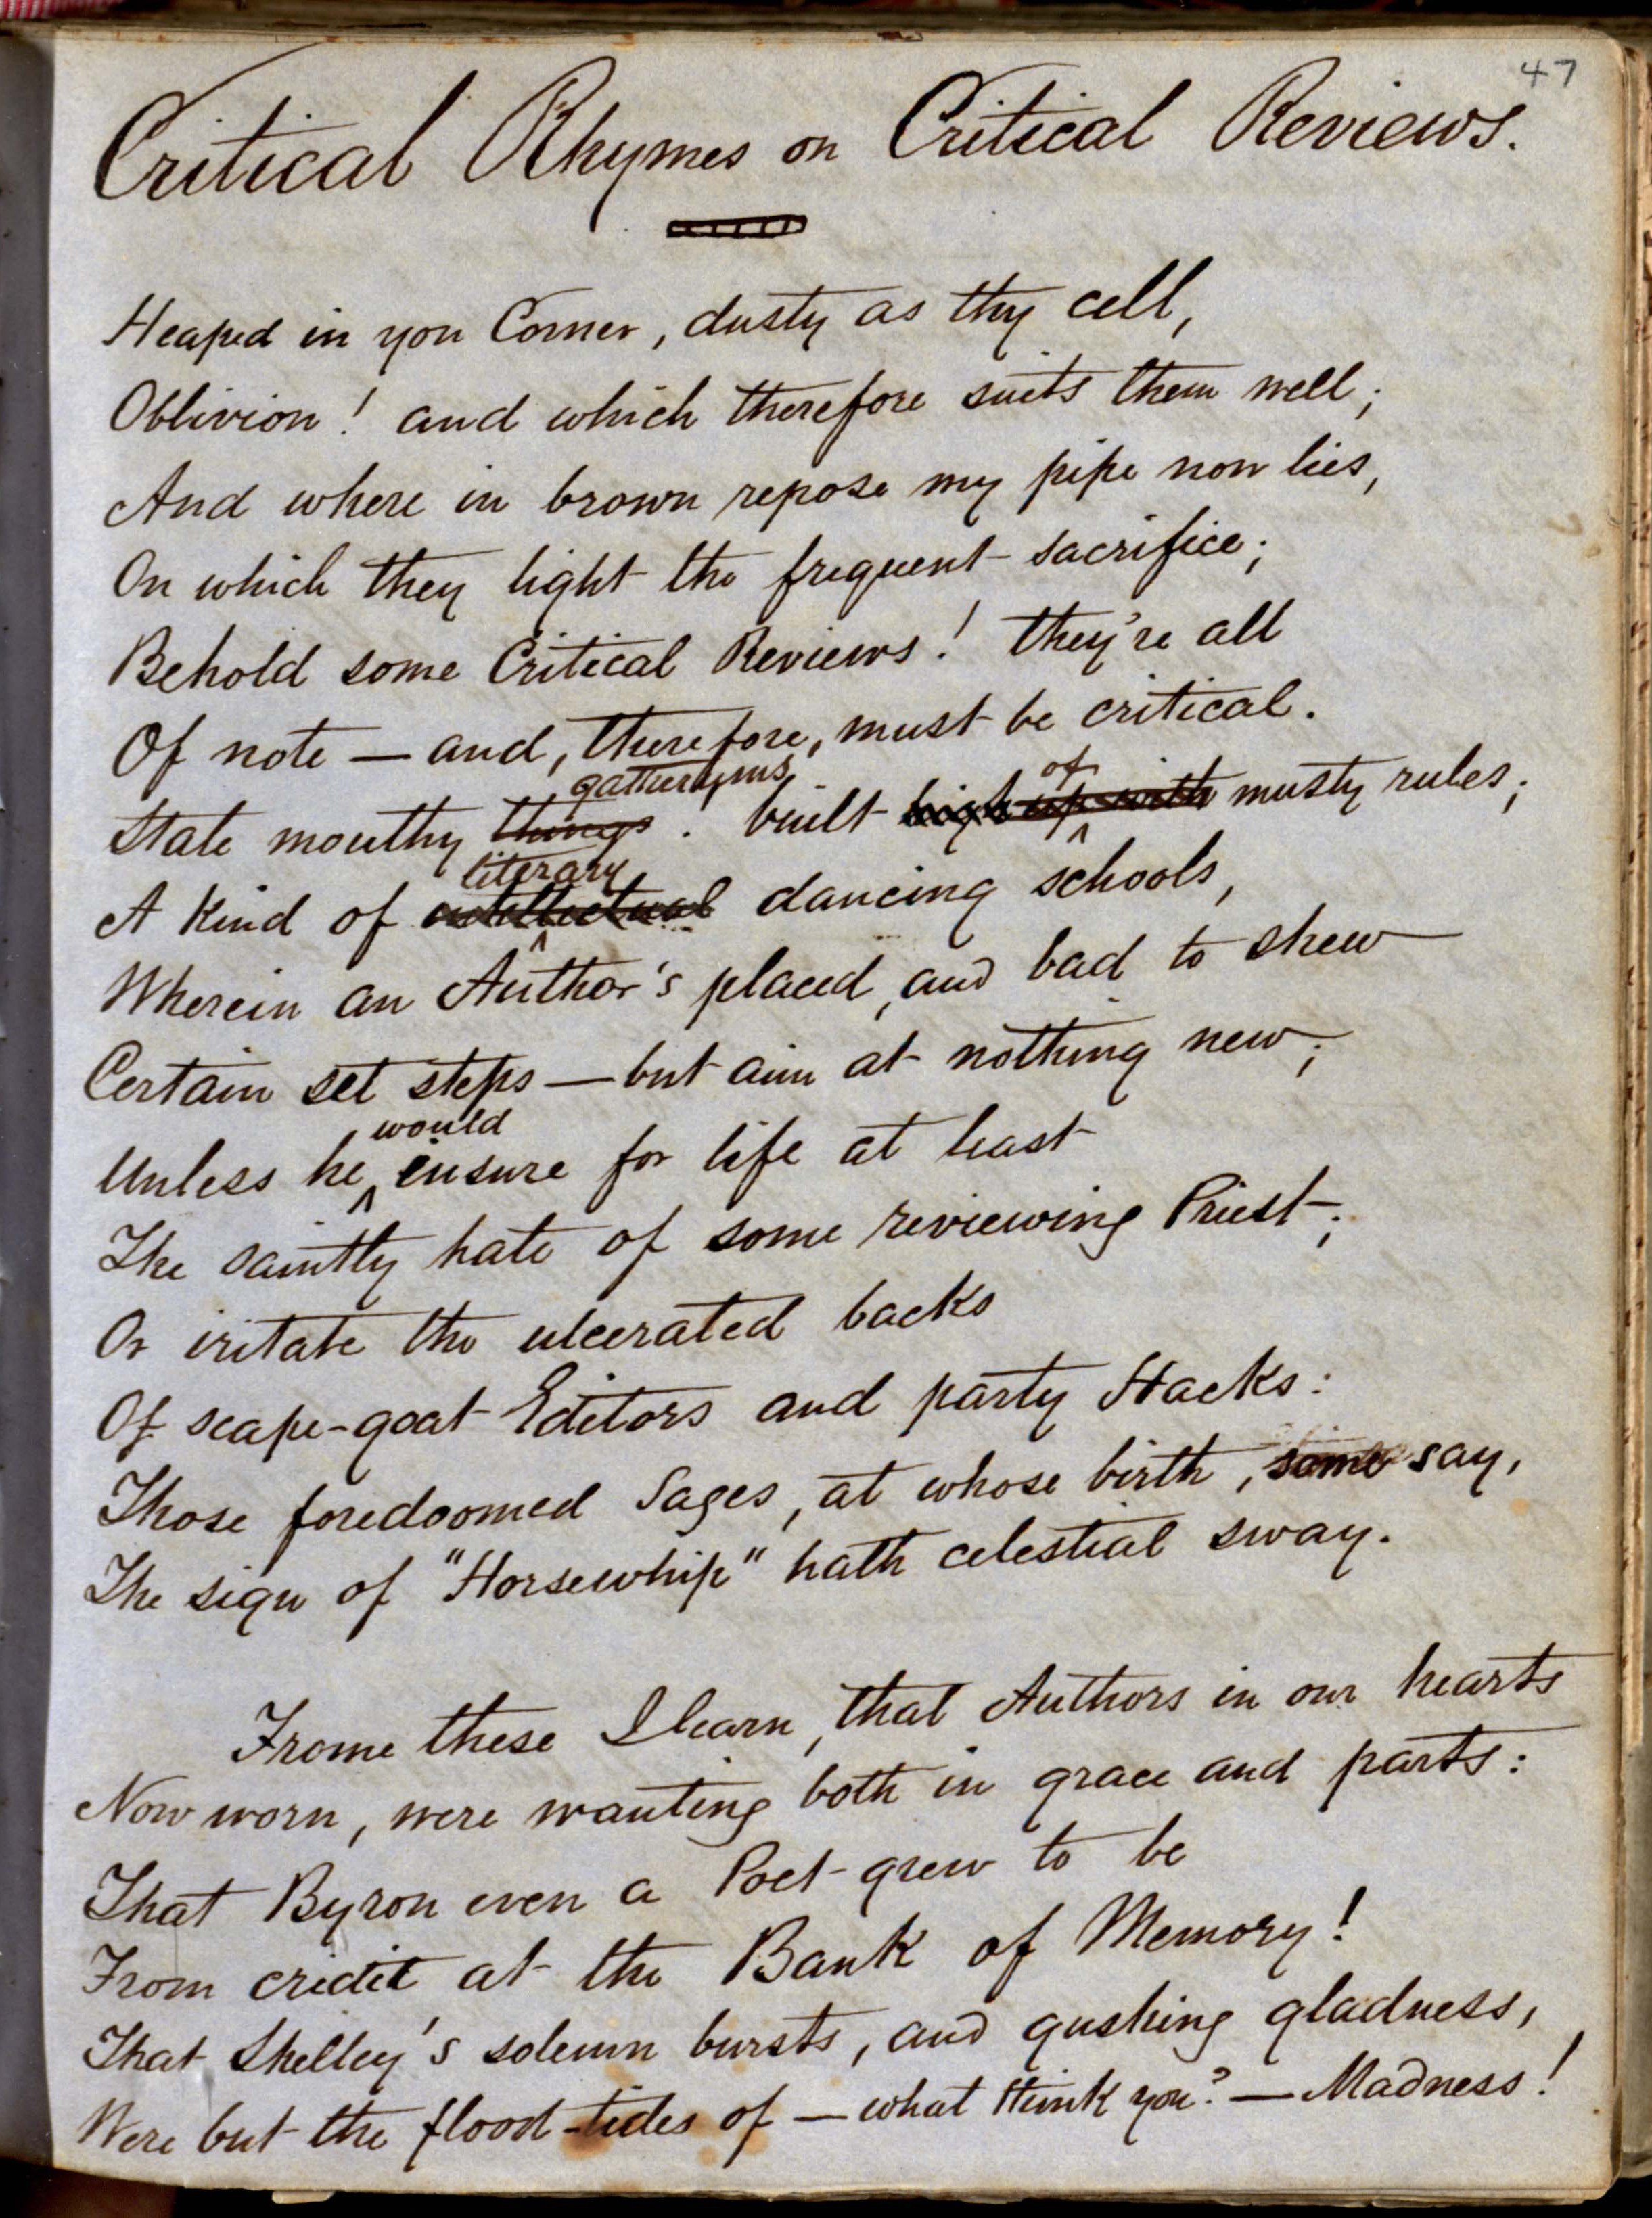 47
Critical Rhymes on Critical Reviews.
Heaped in yon Corner, dusty as thy cell,
Oblivion! and which therefore suits them well;
And where in brown repose my pipe now lies,
On which they light the frequent sacrifice;
Behold some Critical Reviews! they're all
Of note — and, therefore, must be critical.
gatherums, of
State mouthy things. built high up with musty rules;
literary
A kind of intellectual dancing schools,
Wherein an Author's placed, and bad to shew
Certain set steps — but aim at nothing new;
would
Unless he ensure for life at least
The saintly hate of some reviewing Priest;
Or iritate the ulcerated backs
Of scape-goat Editors and party Hacks:
Those foredoomed Sages, at whose birth, some say,
The sign of "Horsewhip" hath celestial sway.
Frome these I learn, that Authors in our hearts
Now worn, were wanting both in grace and parts:
That Byron even a Poet grew to be
From credit at the Bank of Memory!
That Shelley's solemn bursts, and gushing gladness,
Were but the flood-tides of — what think you? — Madness!